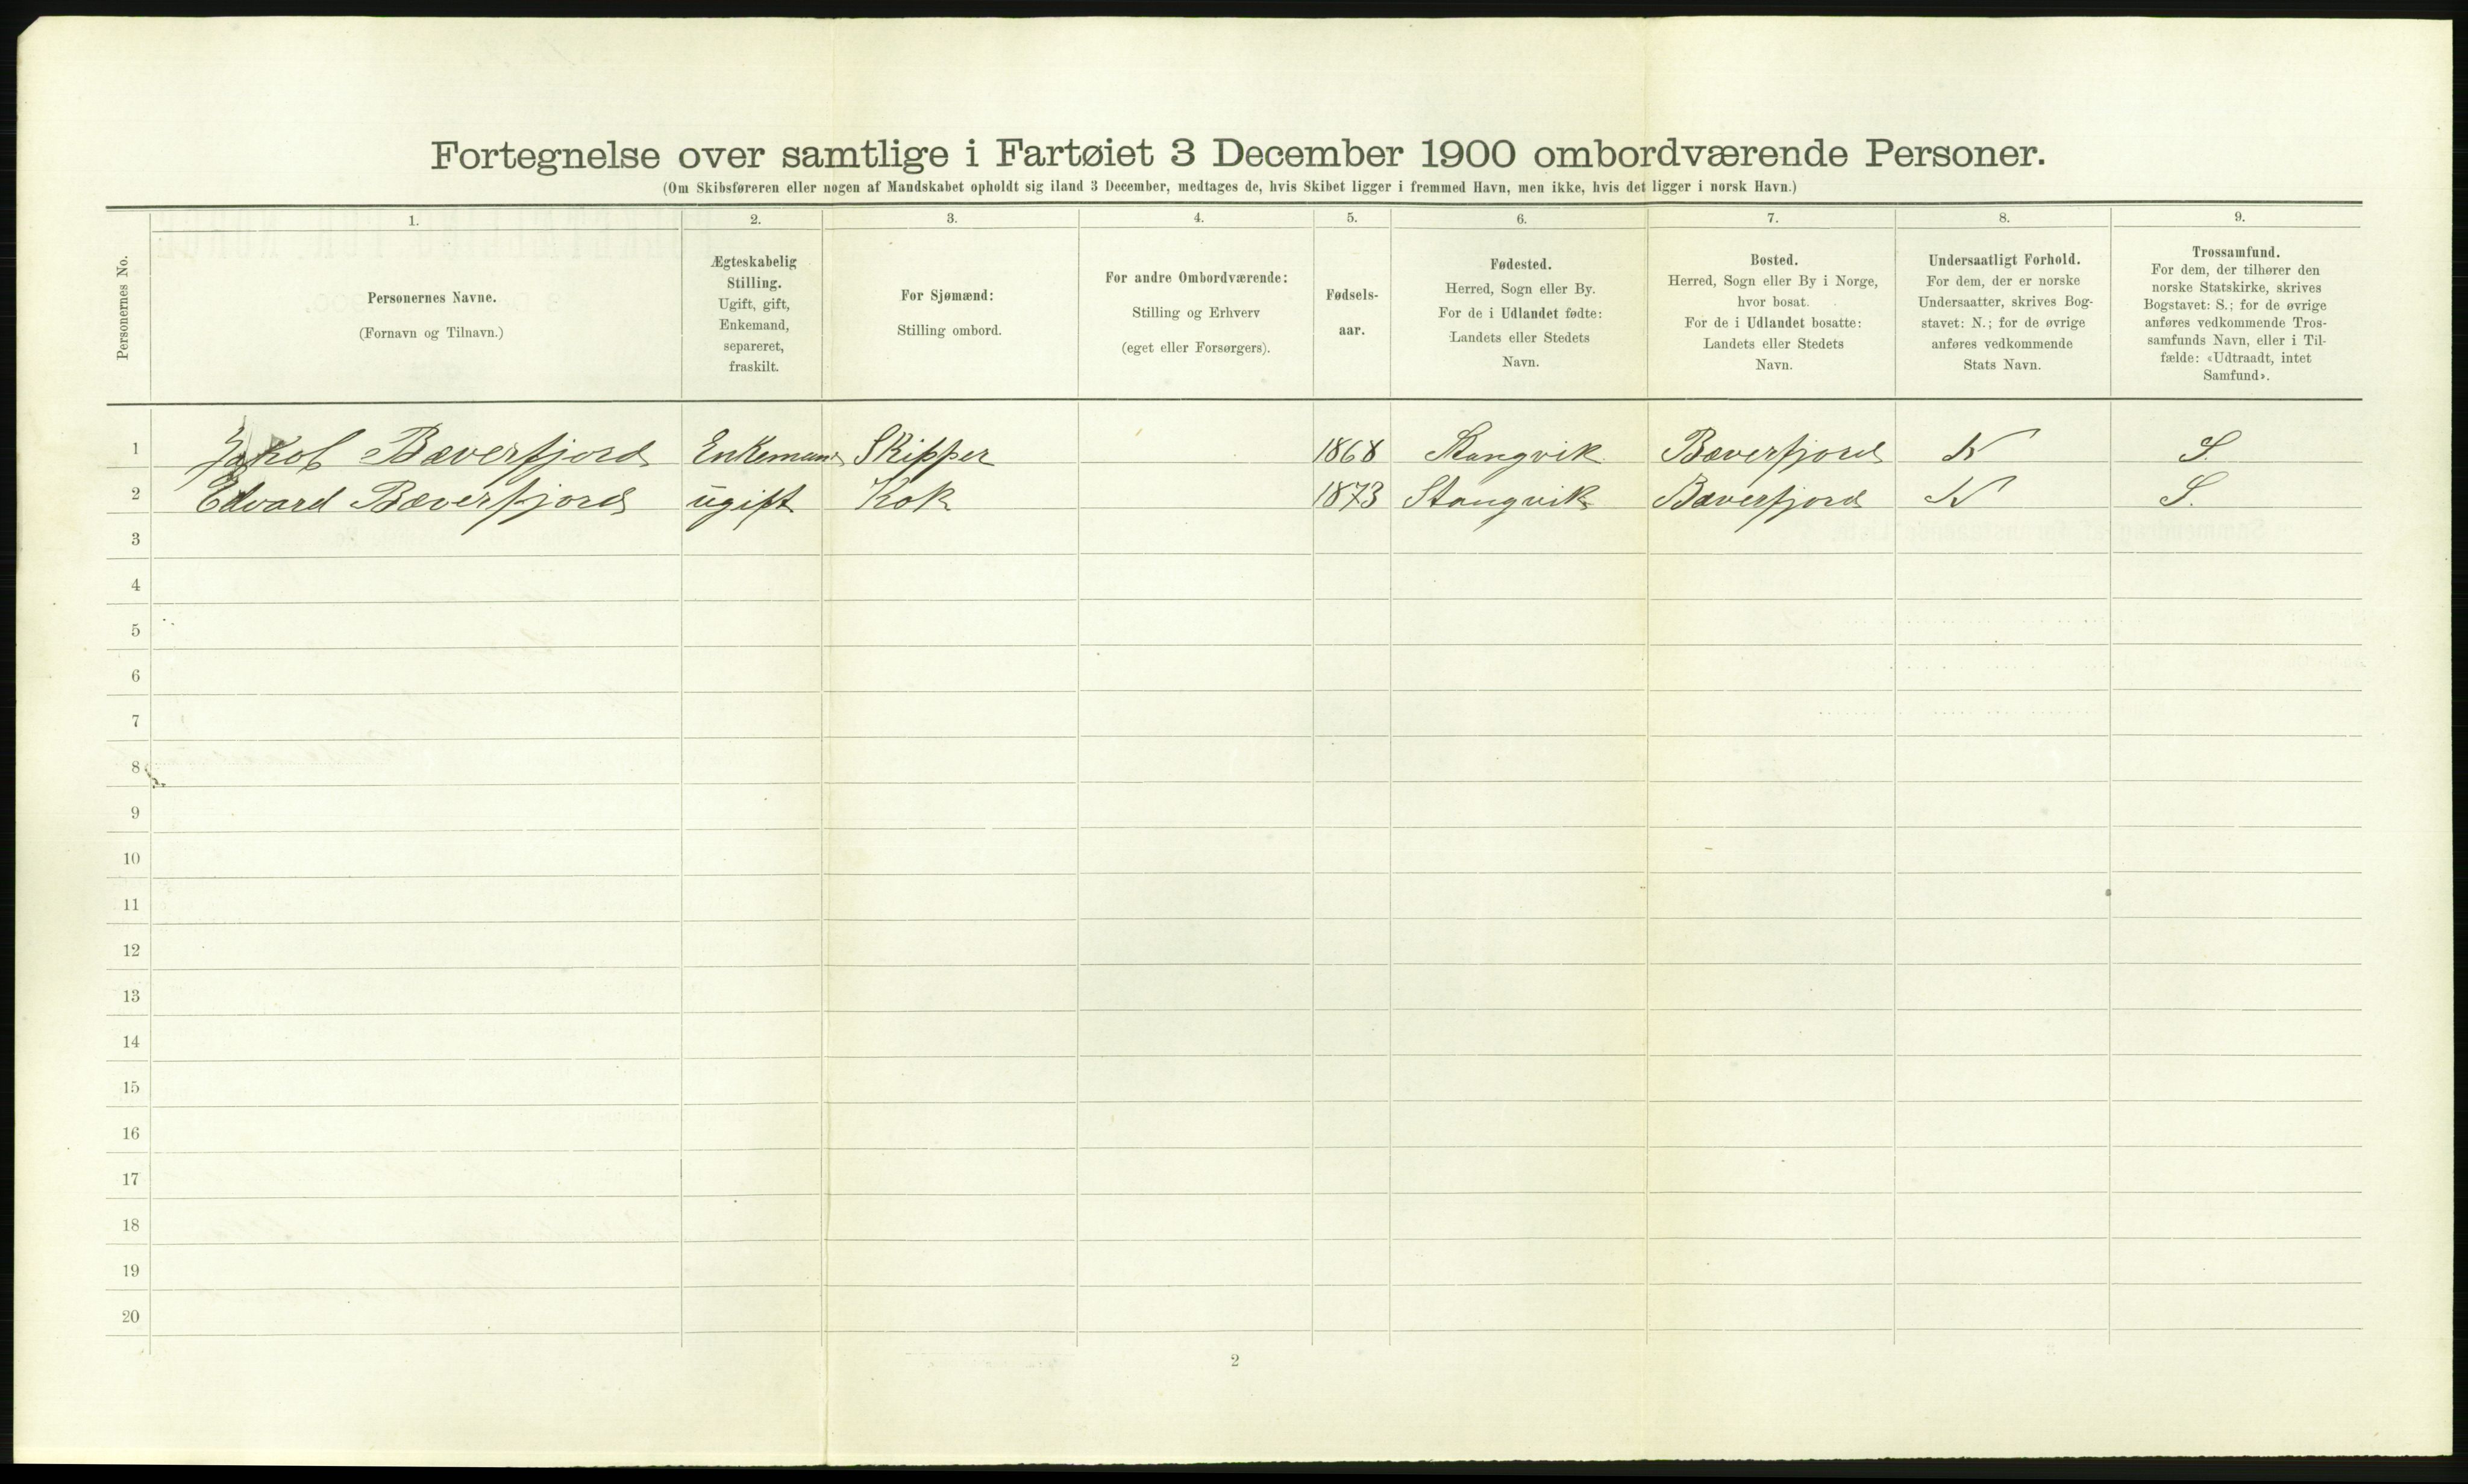 Fortegnelse over samtlige i Fartøiet 3 December 1900 ombordværende Personer.
(Om Skibsføreren eller nogen af Mandskabet opholdt sig iland 3 December, medtages de, hvis Skibet ligger i fremmed Havn, men ikke, hvis det ligger i norsk Havn.)
Personernes No.
1.
Personernes Navne.
(Fornavn og Tilnavn.)
2.
Ægteskabelig
Stilling.
Ugift, gift,
Enkemand,
separeret,
fraskilt.
3.
For Sjømænd:
Stilling ombord.
4.
For andre Ombordværende:
Stilling og Erhverv
(eget eller Forsørgers).
5.
Fødsels-
aar.
6.
Fødested.
Herred, Sogn eller By.
For de i Udlandet fødte:
Landets eller Stedets
Navn.
7.
Bosted.
Herred, Sogn eller By i Norge,
hvor bosat.
For de i Udlandet bosatte:
Landets eller Stedets
Navn.
8.
Undersaatligt Forhold.
For dem, der er norske
Undersaatter, skrives Bog-
stavet: N.; for de øvrige
anføres vedkommende
Stats Navn.
9.
Trossamfund.
For dem, der tilhører den
norske Statskirke, skrives
Bogstavet: S.; for de øvrige
anføres vedkommende Tros-
samfunds Navn, eller i Til-
fælde: «Udtraadt, intet
Samfund».
1 Jakob Bæverfjord Enkemand Skipper 1868 Stangvik Bæverfjord N S.
2 Edvard Bæverfjord ugift Kok 1873 Stangvik Bæverfjord N S.
3
4
5
6
7
8
9
10
11
12
13
14
15
16
17
18
19
20
2